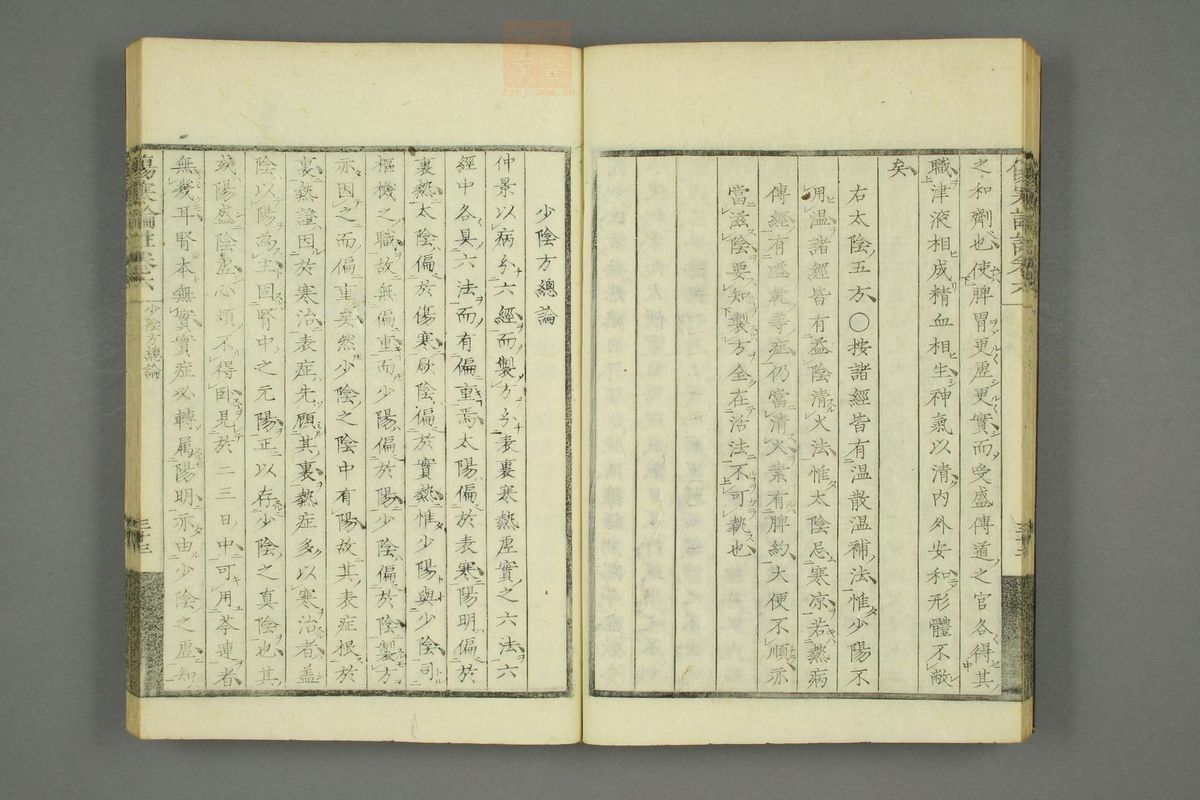 之和劑也使脾胃更虛更實而受盛傳道之官各得其
職津液相成精血相生神氣以清内外安和形體不敝
矣
右太陰五方〇按諸經皆有温散温補法惟少陽不
用温諸經皆有益陰清火法惟太陰忌寒凉若熱病
傳經有嗌乾等症仍當清火業有脾約大便不順亦
當滋陰要知製方全在活法不可執也
少陰方總論
仲景以病分六經而製方分表裏寒熱虛實之六法六
經中各具六法而有偏重焉太陽偏於表寒陽明偏於
裏熱太陰偏於傷寒厥陰偏於實熱惟少陽與少陰司
樞機之職故無偏重而少陽偏於陽少陰偏於陰製方
亦因之而偏重矣然少陰之陰中有陽故其表症根於
裏熱證因於寒治表症先顧其裏熱症多以寒治者盖
陰以陽為主固腎中之元陽正以存少陰之真陰也其
或陽盛陰虛心煩不得卧見於二三日中可用芩連者
無幾耳腎本無實實症必轉属陽明亦由少陰之虛知
傷寒論註卷六
少陰方總論
三十三